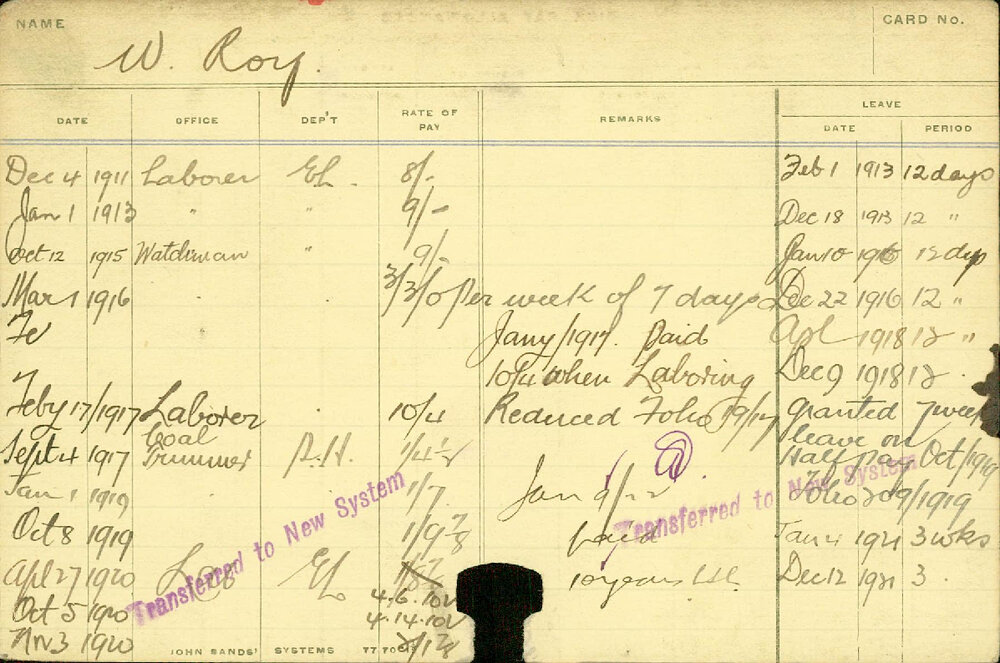 NAME
CARD No.
W. Roy.
DATE OFFICE DEP'T RATE OF PAY REMARKS LEAVE
DATE PERIOD
Dec 4 1911 Laborer EL. 8/- Feb 1 1913 12 days
Jan 1 1913 " " 9/- Dec 18 1913 12 "
Oct 12 1915 Watchman " 9/- Jan 10 1916 12 dys
Mar 1 1916 3/3/0 Per week of 7 days Dec 22 1916 12 "
Fe Jany /1917. Paid Apl 1918 12 "
10/4 when Laboring Dec 9 1918 12
Feby 17/1917 Laborer 10/4 Reduced Folio 19/17 granted 7 week
Sept 4 1917 Coal Trimmer P.H. 1/4½ leave on Half pay Oct/1919
Jan 1 1919 1/7 Jan 9/22 Folio 209/1919
Oct 8 1919 1/9⅞ paid Jan 4 1921 3 wks
Apl 27 1920 Lab EL 10 years LSL Dec 12 1921 3
Oct 5 1920 4.6.10½
4.14.10½
Nov 3 1920
Transferred to New System
Transferred to New System
JOHN SANDS' SYSTEMS